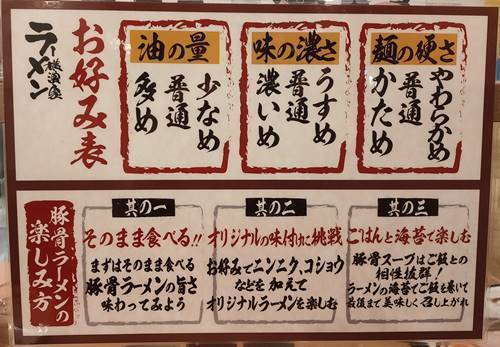 お好み表
ラーメン 横濱家
麺の硬さ
やわらかめ
普通
かため
味の濃さ
うすめ
普通
濃いめ
油の量
少なめ
普通
多め
豚骨ラーメンの
楽しみ方
其の一
そのまま食べる!!
まずはそのまま食べる
豚骨ラーメンの旨さ
味わってみよう
其の二
オリジナルの味付けに挑戦
お好みでニンニク、コショウ
などを加えて
オリジナルラーメンを楽しむ
其の三
ごはんと海苔で楽しむ
豚骨スープはご飯との
相性抜群!
ラーメンの海苔でご飯を巻いて
最後まで美味しく召し上がれ